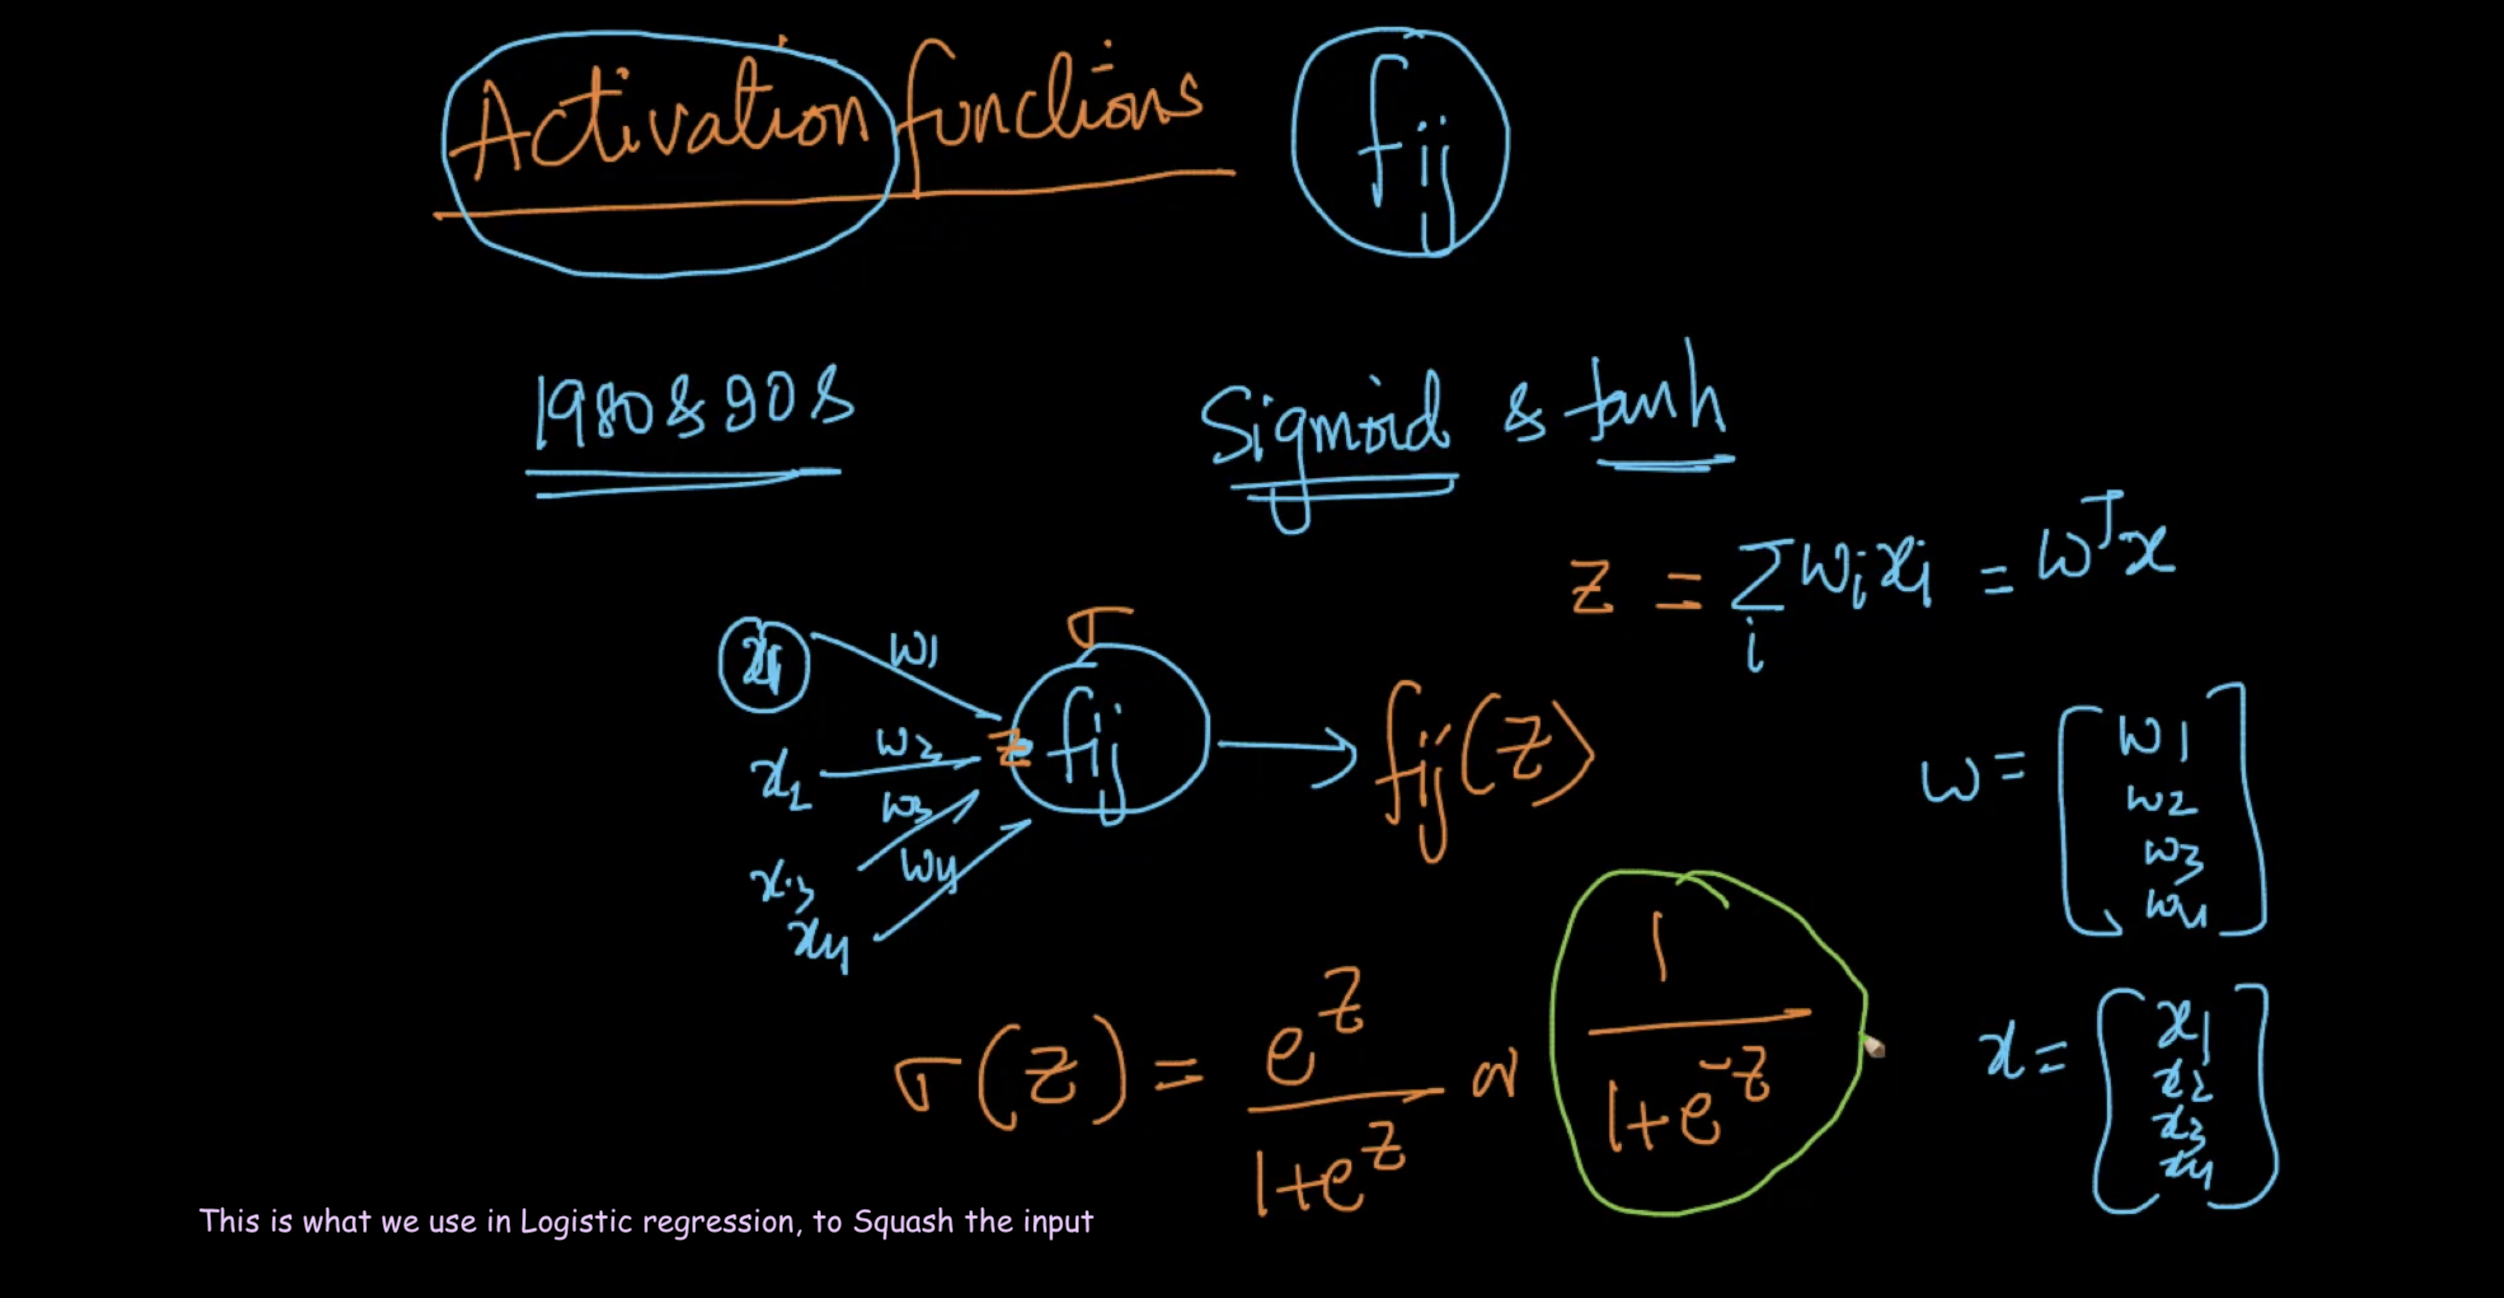 Activation functions fij
1980 & 90s
Sigmoid & tanh
z = Σ wi xi = wᵀx
i
σ
x1 w1
x2 w2
x3 w3
x4 w4
z fij → fij(z)
w = [w1
w2
w3
w4]
σ(z) = e^z / (1+e^z) or 1 / (1+e^-z)
x = [x1
x2
x3
x4]
This is what we use in Logistic regression, to Squash the input